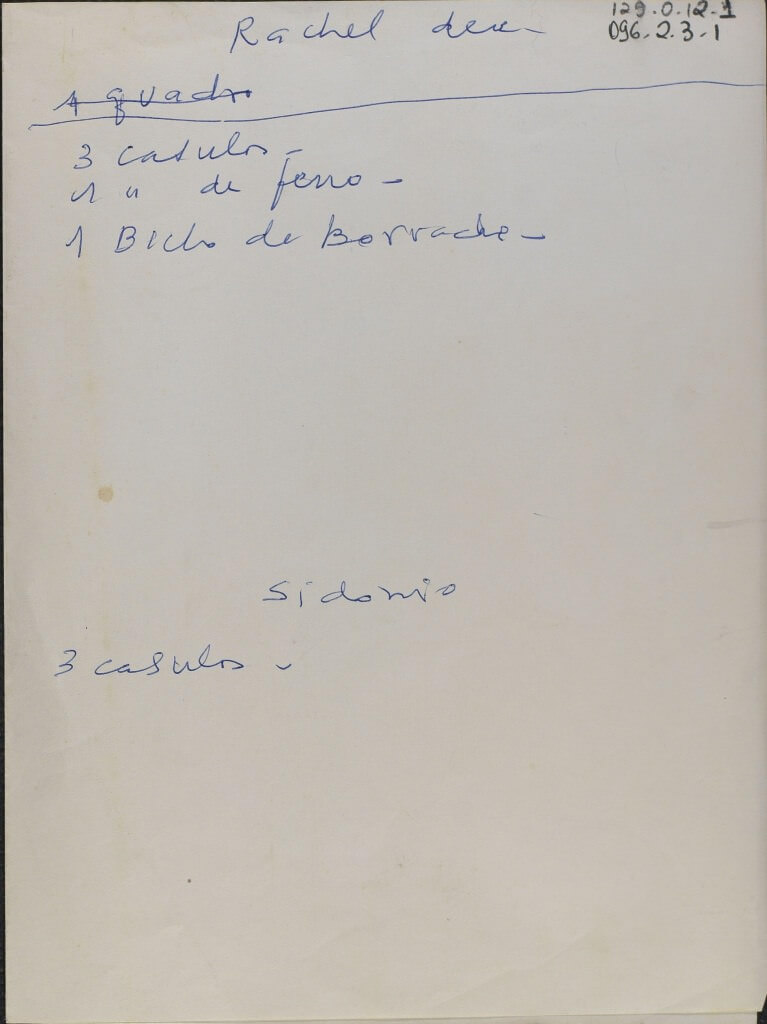 129.0.12-1
096.2.3-1
Rachel deve-
1 quadro
3 casulos -
1 " de ferro -
1 Bicho de Borracha -
Sidonio
3 casulos -